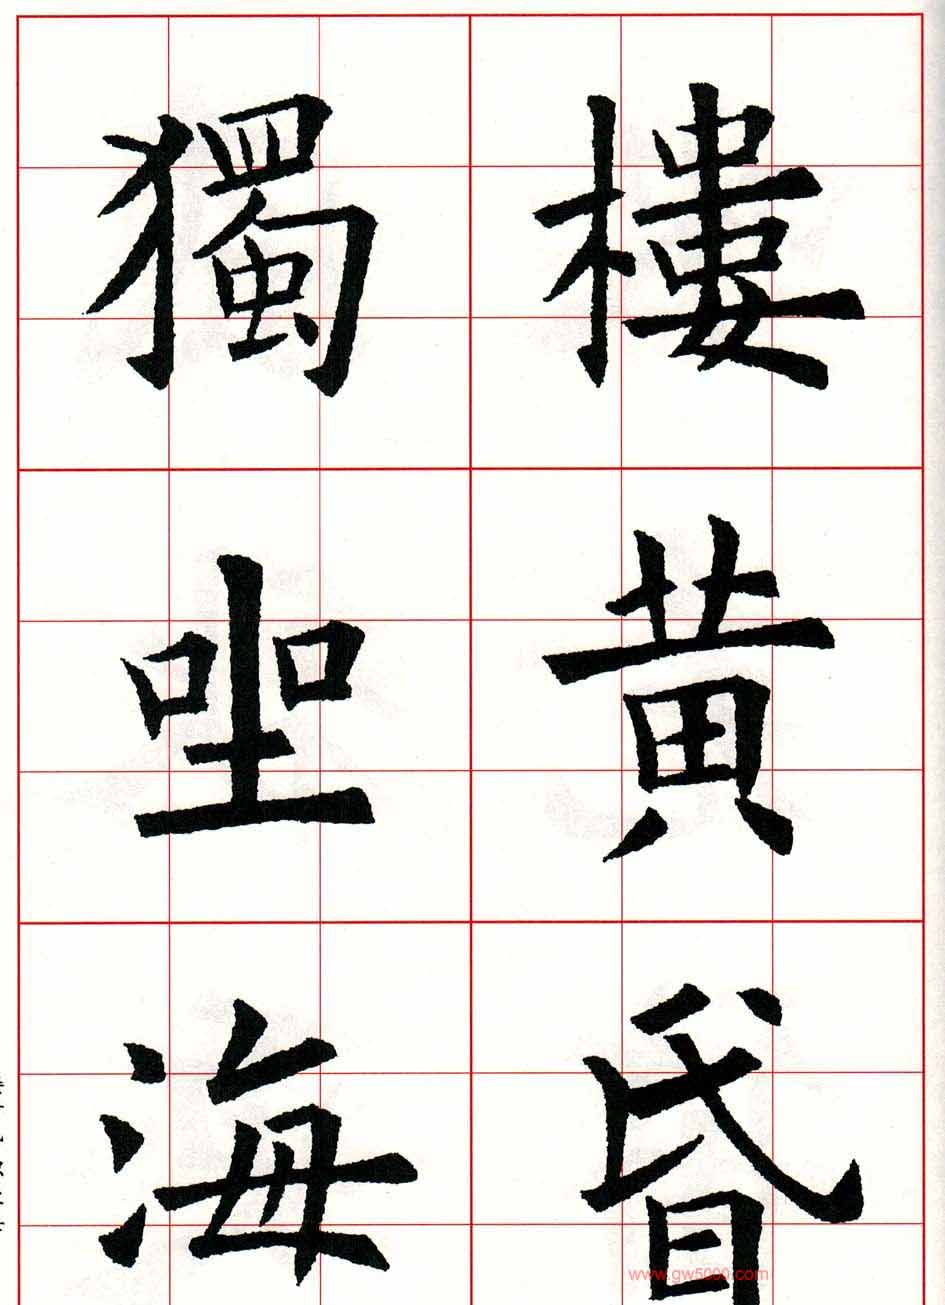 樓黃昏
獨坐海
www.gw5000.com